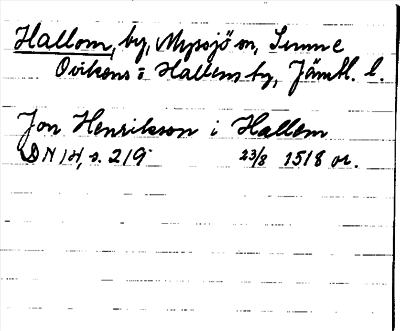 Hallom, by, Myssjö sn, Sunne
Ovikens o Hallens tg, Jämtl. l.
Jon Henrikson i Hallem
DN 14, s. 219 23/8 1518 or.